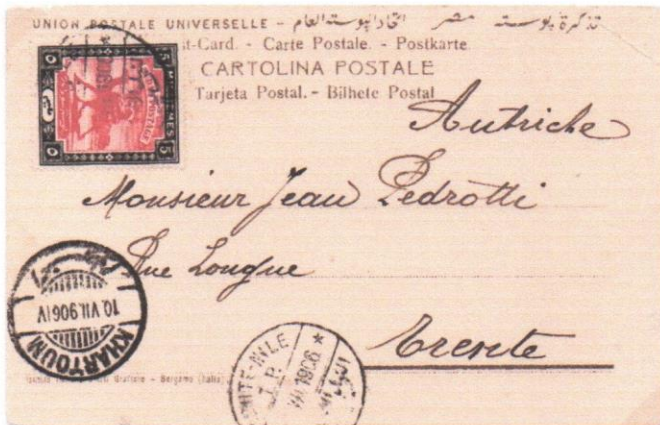 UNION POSTALE UNIVERSELLE - تذكرة بوستة مصر اتحاد البوستة العام
st-Card. - Carte Postale. - Postkarte
CARTOLINA POSTALE
Tarjeta Postal. - Bilhete Postal
5 MILLIEMES 5
Autriche
Monsieur Jean Pedrotti
Rue Longue
Trente
KHARTOUM
10.VII.906 IV
WHITE-NILE
T.P.
VII 1906 *
Bergamo (Italia)